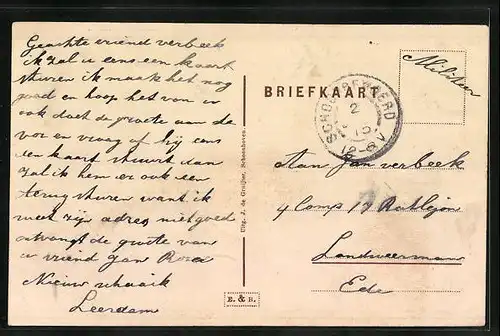 Geachte vriend verbeek
ik zal u eens een kaart
sturen ik maak het nog
goed en hoop het van u
ook doet de groete aan de
vor en vraag of hij eens
een kaart stuurt dan
zal ik hem er ook een
terug sturen want ik
weet zijn adres niet goed
ontvangt de groete van
u vriend Jan
Nieuw schaaik
Leerdam
Uitg. J. de Gruijter, Schoonhoven.
E. & B.
BRIEFKAART
SCHOONREWOERD
2
15
12-6V
Militair
Aan Jan verbeek
4 Comp 17 Bataljon
Landweerman
Ede